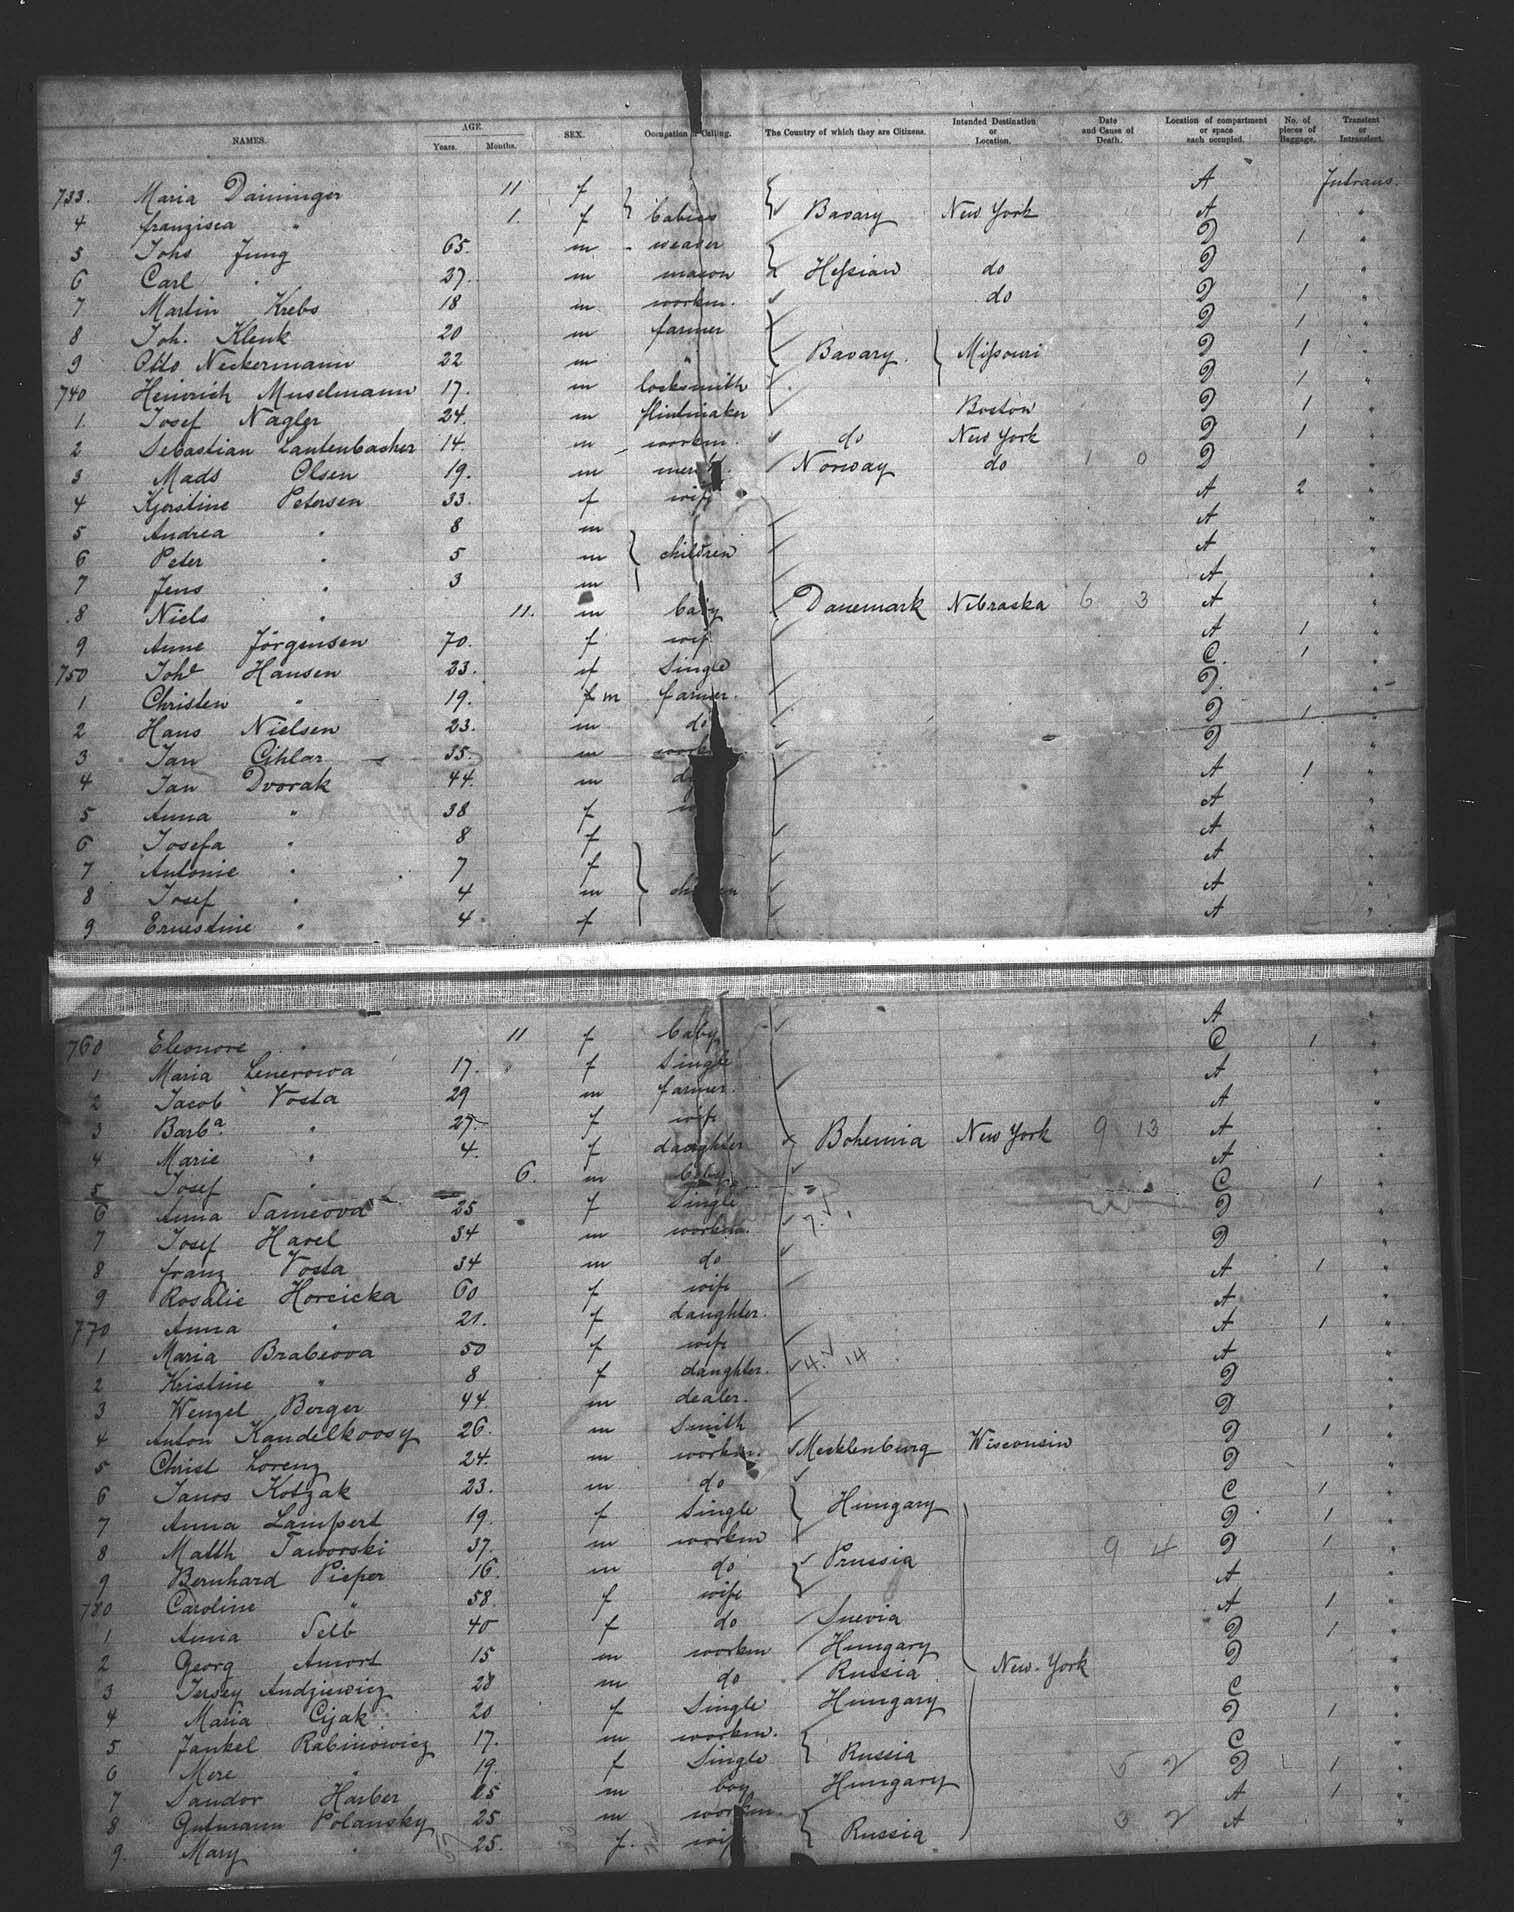 NAMES. AGE. Years. Months. SEX. Occupation Calling. The Country of which they are Citizens. Intended Destination or Location. Date and Cause of Death. Location of compartment or space each occupied. No. of pieces of Baggage. Transient or Intransient.
733. Maria Daininger 11 f A Intrans.
4 franzisca " 1. f babies Bavary New York A "
5 Johs Jung 65. m weaver D 1 "
6 Carl " 27. m mason Heſsian do D "
7 Martin Krebs 18 m workm. do D 1 "
8 Joh. Klenk 20 m farmer D 1 "
9 Otto Neckermann 22 m " Bavary Miſsouri D 1 "
740 Heinrich Muselmann 17. m locksmith D 1 "
1. Josef Nagler 24. m flintmaker Boston D 1 "
2 Sebastian Lautenbacher 14. m workm. do New York D 1 "
3 Mads Olsen 19. m Norway do 1 0 D "
4 Kjerstine Petersen 33. f wife A 2 "
5 Andrea " 8 m A "
6 Peter " 5 m children A "
7 Jens " 3 m A "
8 Niels " 11. m baby Danemark Nebraska 6 3 A "
9 Anne Jörgensen 70. f wif A 1 "
750 Joh Hansen 23. f Single C. 1 "
1 Christen " 19. m farmer. D. "
2 Hans Nielsen 23. m do D 1 "
3 Jan Cihlar 35. m D "
4 Jan Dvorak 44. m A 1 "
5 Anna " 38 f A "
6 Josefa " 8 f A "
7 Antonie " 7 f A "
8 Josef " 4 m A "
9 Ernestine " 4 f A "
760 Eleonore " 11 f baby A "
1 Maria Lenerowa 17. f Single C 1 "
2 Jacob Vosta 29 m farmer. A
3 Barba " 27. f wife A "
4 Marie " 4. f daughter Bohemia New York 9 13 A "
5 Josef " 6. m baby A "
6 Anna 25 f Single C 1 "
7 Josef Havel 34 m workm. D
8 franz Vosta 34 m do D "
9 Rosalie Horcicka 60 f wife A 1 "
770 Anna " 21. f daughter. A "
1 Maria Brabcova 50 f wife A 1 "
2 Kristine " 8 f daughter. 4. 14 A "
3 Wenzel Berger 44 m dealer. D "
4 Anton Kandelkoosy 26. m Smith D "
5 Christ Lorenz 24. m workm. Mecklenburg Wisconsin D 1 "
6 Janos Kotzak 23. m do D "
7 Anna Lampert 19. f Single Hungary C 1 "
8 Matth Jaworski 37. m workm D 1 "
9 Bernhard Pieper 16. m do Prussia 9 4 D 1 "
780 Caroline " 58. f wife A "
1 Anna Selb 40 f do Suevia A 1 "
2 Georg Amort 15 m workm Hungary D 1 "
3 Jersey Andziewicz 28 m do Russia New-York D "
4 Maria Cijak 20 f Single Hungary C "
5 Jankel Rabinowicz 17. m workm. D 1 "
6 Mere " 19. f Single Russia C "
7 Sandor Harber m boy Hungary 5 2 D 1 "
8 Gutmann Polansky 25 m workm. A 1 "
9. Mary " 25. f. wife Russia 3 2 A "